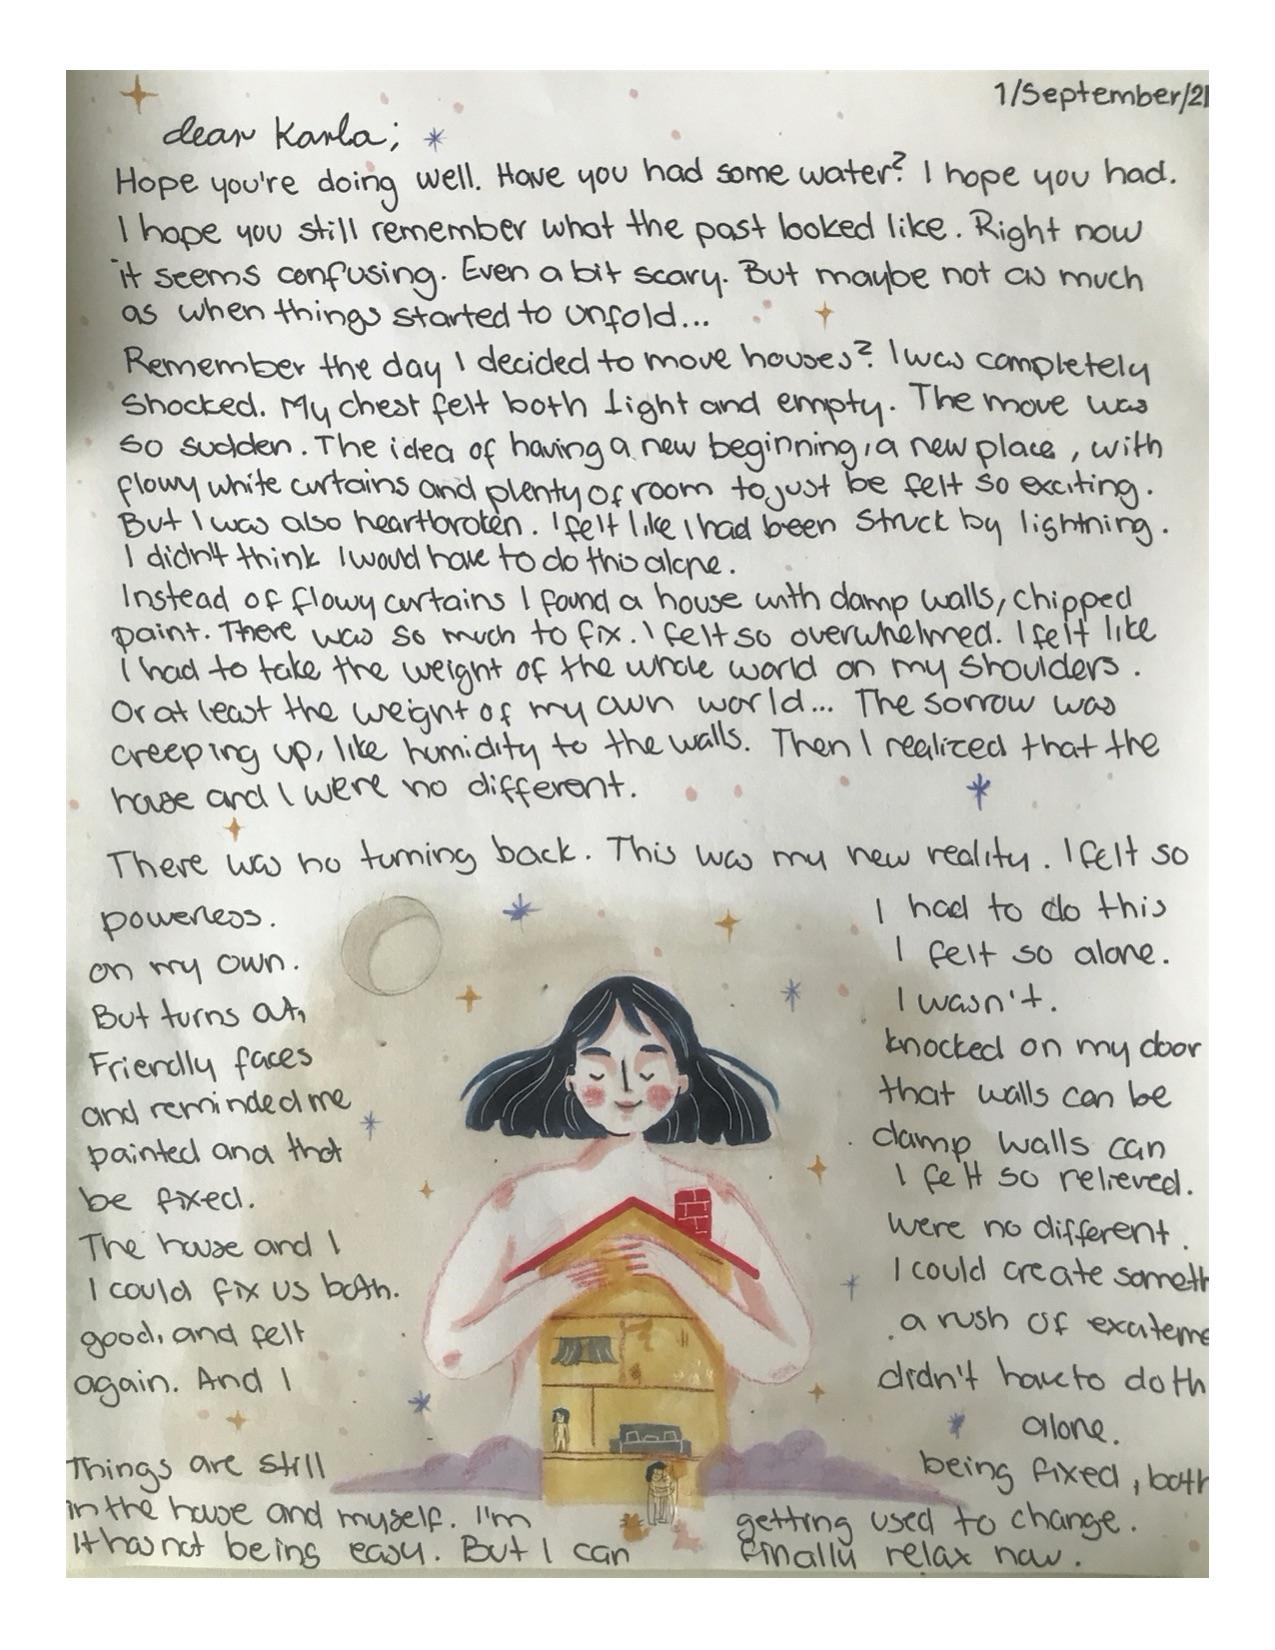 1/September/21
dear Karla;
Hope you're doing well. Have you had some water? I hope you had.
I hope you still remember what the past looked like. Right now
it seems confusing. Even a bit scary. But maybe not as much
as when things started to unfold...
Remember the day I decided to move houses? I was completely
Shocked. My chest felt both light and empty. The move was
so sudden. The idea of having a new beginning, a new place, with
flowy white curtains and plenty of room to just be felt so exciting.
But I was also heartbroken. I felt like I had been struck by lightning.
I didn't think I would have to do this alone.
Instead of flowy curtains I found a house with damp walls, chipped
paint. There was so much to fix. I felt so overwhelmed. I felt like
I had to take the weight of the whole world on my shoulders.
Or at least the weight of my own world... The sorrow was
creeping up, like humidity to the walls. Then I realized that the
house and I were no different.
There was no turning back. This was my new reality. I felt so
powerless. I had to do this
on my own. I felt so alone.
But turns out, I wasn't.
Friendly faces knocked on my door
and reminded me that walls can be
painted and that damp walls can
be fixed. I felt so relieved.
The house and I were no different.
I could fix us both. I could create someth
good, and felt a rush of exciteme
again. And I didn't have to do th
alone.
Things are still being fixed, both
in the house and myself. I'm getting used to change.
It has not being easy. But I can finally relax now.